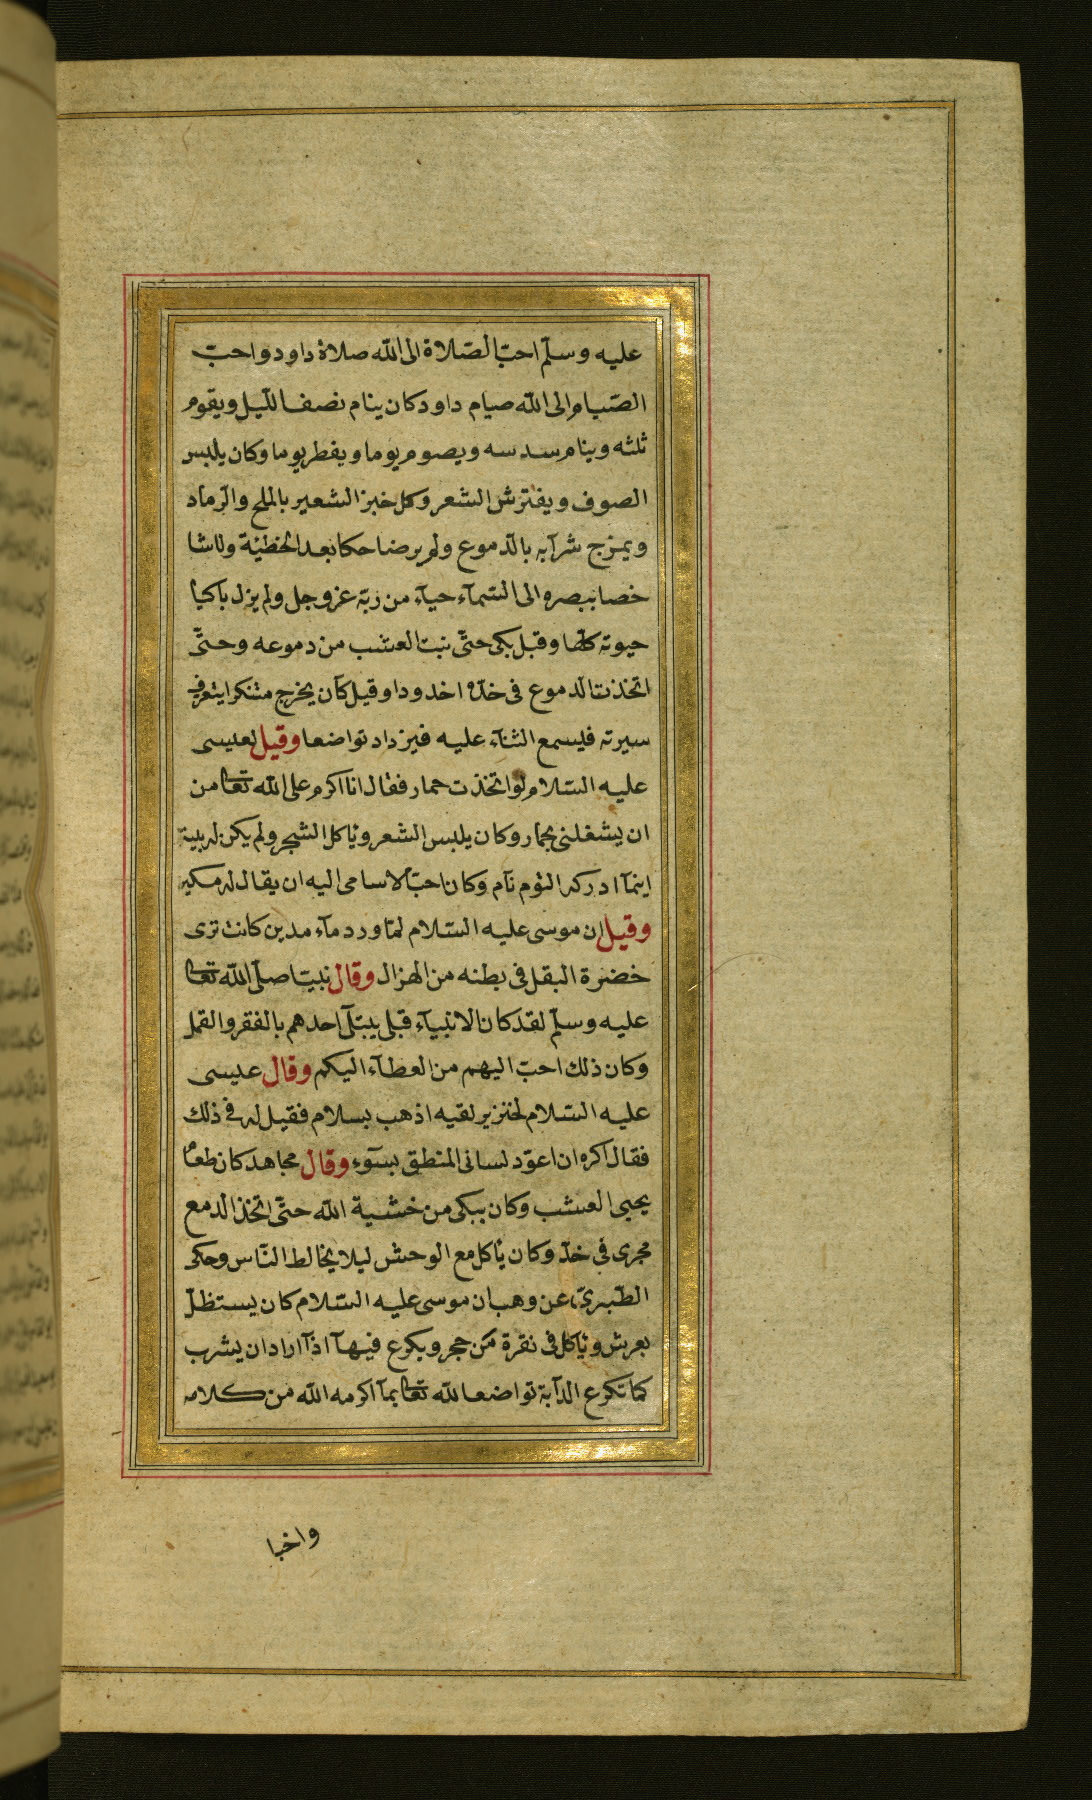 عليه وسلّم احبّ الصّلاة الى اللّه صلاة داود واحبّ
الصّيام الى اللّه صيام داود كان ينام نصف اللّيل ويقوم
ثلثه وينام سدسه ويصوم يوما ويفطر يوما وكان يلبس
الصوف ويفترش الشعر وكل خبز الشعير بالملح والرّماد
ويمزج شرآبه بالدّموع ولم ير ضاحكا بعد الخطيئة ولا شا
خصا ببصره الى السّمآء حيآء من ربّه عزوجل ولم يزل باكيا
حيوته كلّها وقيل بكى حتّى نبت العشب من دموعه وحتّى
اتخذت الدّموع فى خدّه اخدودا وقيل كان يخرج متنكرا يتعرف
سيرته فيسمع الثنآء عليه فيزداد تواضعا وقيل لعيسى
عليه السّلام لو اتخذت حمار فقال انا اكرم على اللّه تعا من
ان يشغلنى بحمار وكان يلبس الشعر ويأكل الشجر ولم يكن له بيت
اينمآ ادركه النّوم نام وكان احبّ الاسامى اليه ان يقال له مسكين
وقيل ان موسى عليه السّلام لمّا ورد مآء مدين كانت ترى
خضرة البقل فى بطنه من الهزال وقال نبيّنا صلّى اللّه تعا
عليه وسلّم لقد كان الانبيآء قبلى يبتلى احدهم بالفقر والقمل
وكان ذلك احبّ اليهم من العطآء اليكم وقال عيسى
عليه السّلام لخنزير لقيه اذهب بسلام فقيل له فى ذلك
فقال اكره ان اعوّد لسانى المنطق بسوء وقال مجاهد كان طعام
يحيى العشب وكان يبكى من خشية اللّه حتّى اتخذ الدمع
مجرى فى خدّه وكان يأكل مع الوحش ليلا يخالط النّاس وحكى
الطّبرىّ عن وهب ان موسى عليه السّلام كان يستظلّ
بعريش ويأكل فى نقرة من حجر ويكرع فيهآ اذآ اراد ان يشرب
كما تكرع الدّآبة تواضعا للّه تعا بمآ اكرمه اللّه من كلامه
واخبا